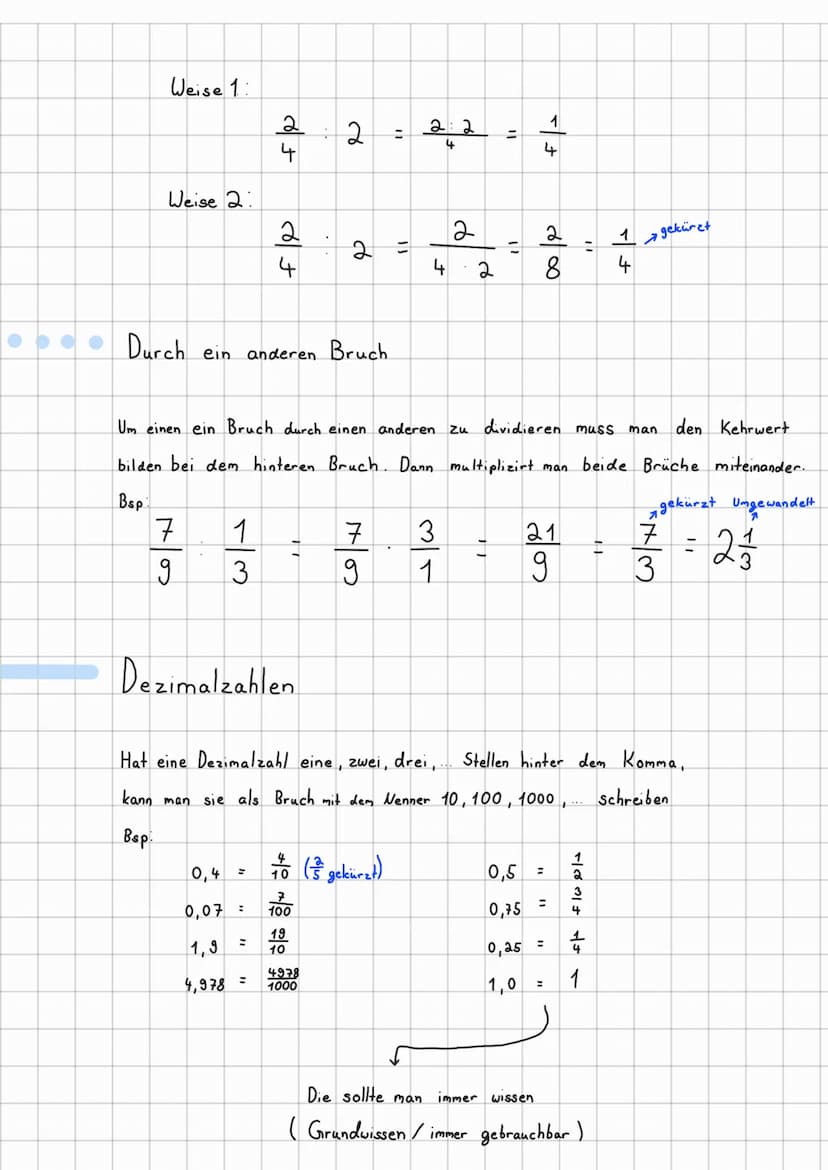 Weise 1:
2/4 : 2 = 2:2/4 = 1/4
Weise 2:
2/4 : 2 = 2/(4 · 2) = 2/8 = 1/4 ↗gekürzt
Durch ein anderen Bruch
Um einen ein Bruch durch einen anderen zu dividieren muss man den Kehrwert
bilden bei dem hinteren Bruch. Dann multiplizirt man beide Brüche miteinander.
Bsp:
↗gekürzt Umgewandelt
7/9 : 1/3 = 7/9 · 3/1 = 21/9 = 7/3 = 2 1/3
Dezimalzahlen
Hat eine Dezimalzahl eine, zwei, drei,... Stellen hinter dem Komma,
kann man sie als Bruch mit dem Nenner 10, 100, 1000,... schreiben
Bsp:
0,4 = 4/10 (2/5 gekürzt) 0,5 = 1/2
0,07 = 7/100 0,75 = 3/4
1,9 = 19/10 0,25 = 1/4
4,978 = 4978/1000 1,0 = 1
Die sollte man immer wissen
(Grundwissen / immer gebrauchbar)